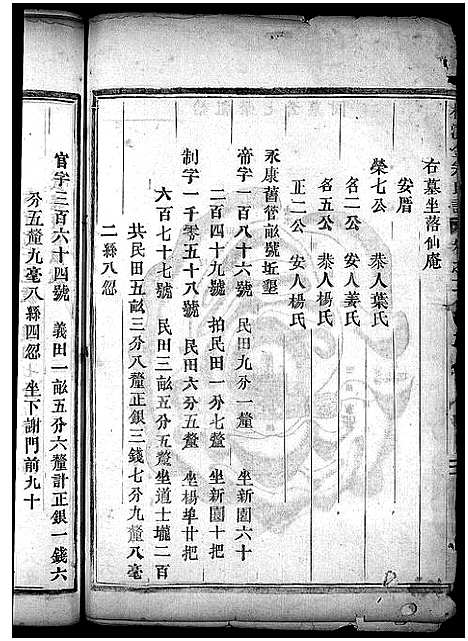 右墓坐落仙庵
安厝
榮七公 恭人葉氏
名二公 安人姜氏
名五公 恭人楊氏
正二公 安人楊氏
永康舊管畝號坵墾
帝字一百八十六號 民田九分一釐 坐新園六十
二百四十九號 拍民田一分七釐 坐新園十把
制字一千零五十八號 民田六分五釐 坐楊埠廿把
六百七十七號 民田三畝五分五釐坐道士壠二百
共民田五畝三分八釐正銀三錢七分九釐八毫
二縣八忽
官字三百六十四號 義田一畝五分六釐計正銀一錢六
分五釐九毫八縣四忽 坐下謝門前九十